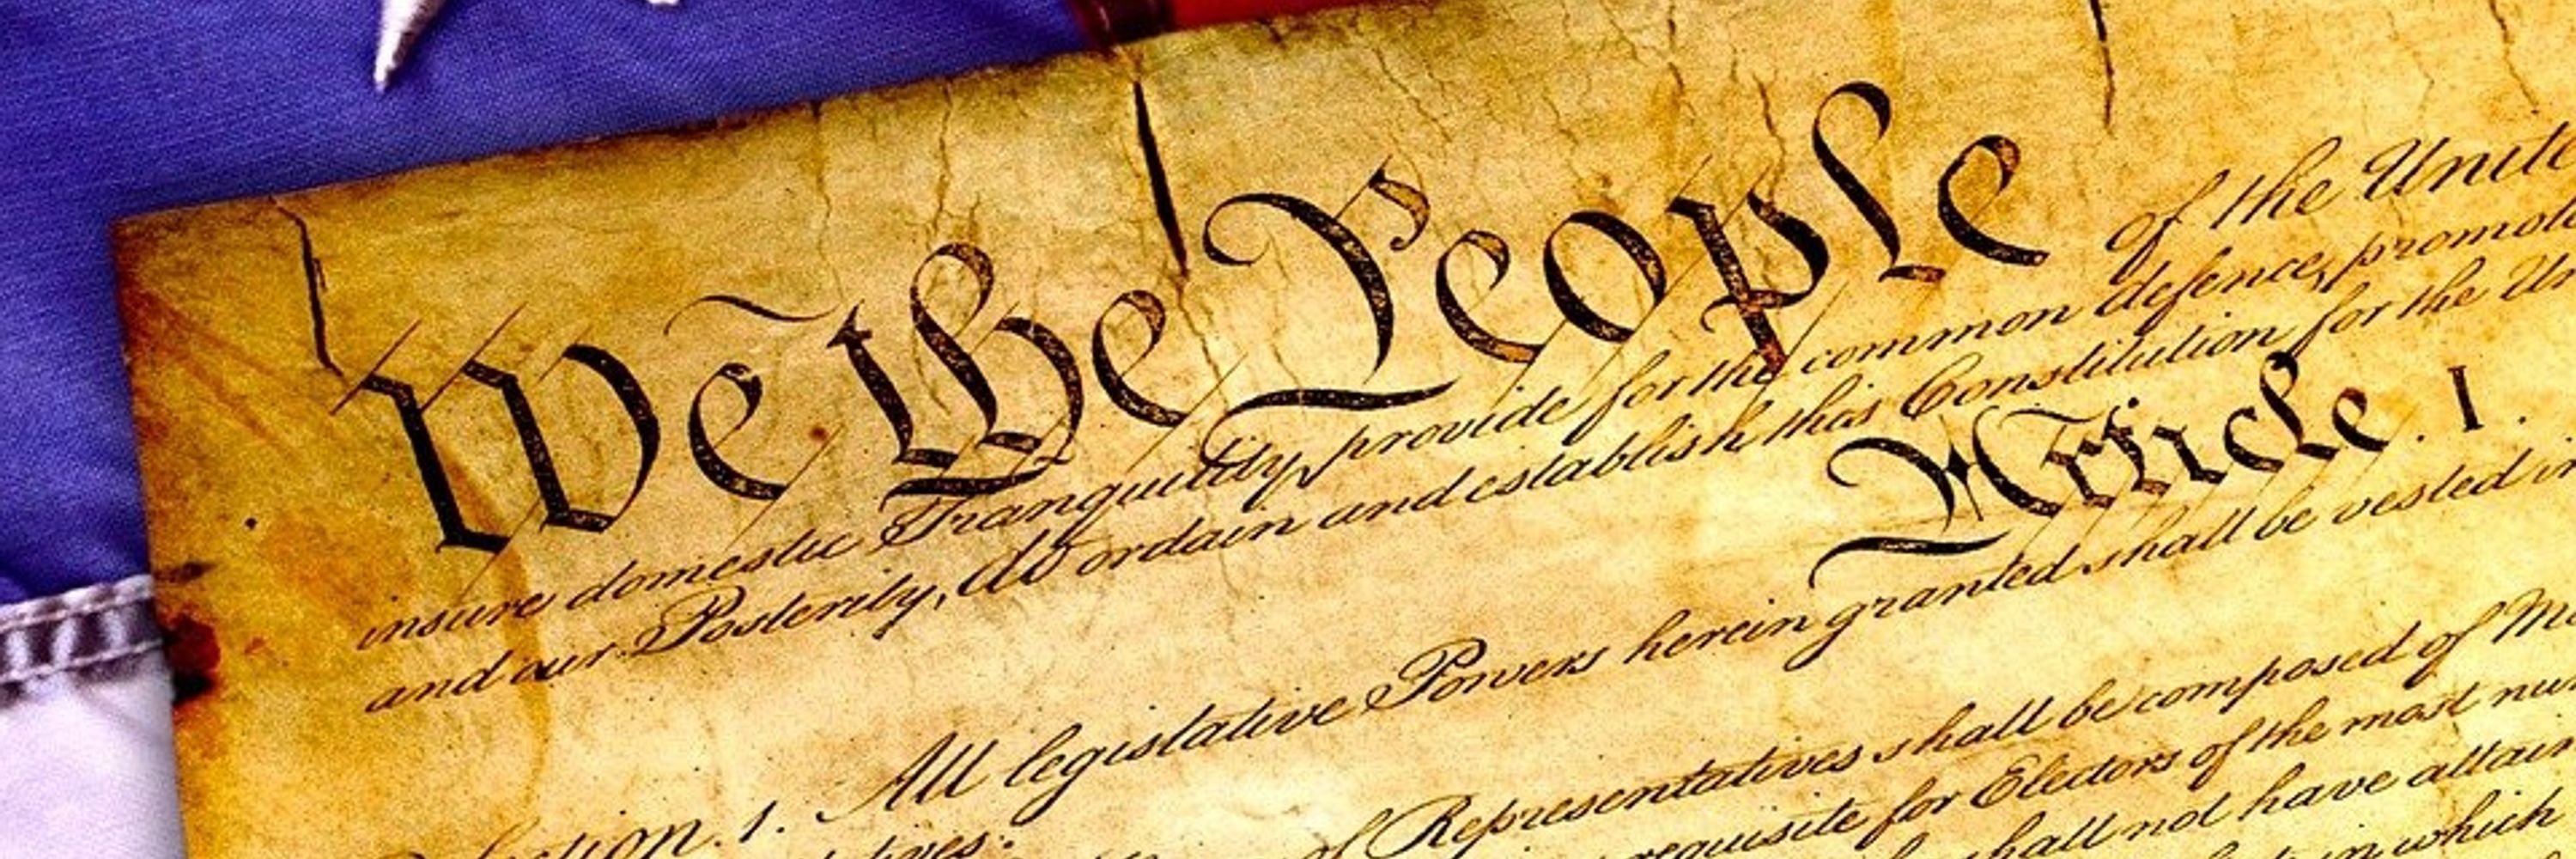 We the People of the Unite
insure domestic Tranquility, provide for the common defence, promote
and our Posterity, do ordain and establish this Constitution for the Un
Article. I.
ction. 1. All legislative Powers herein granted shall be vested in
tives.
of Representatives shall be composed of Me
requisite for Electors of the most nu
shall not have attain
in which